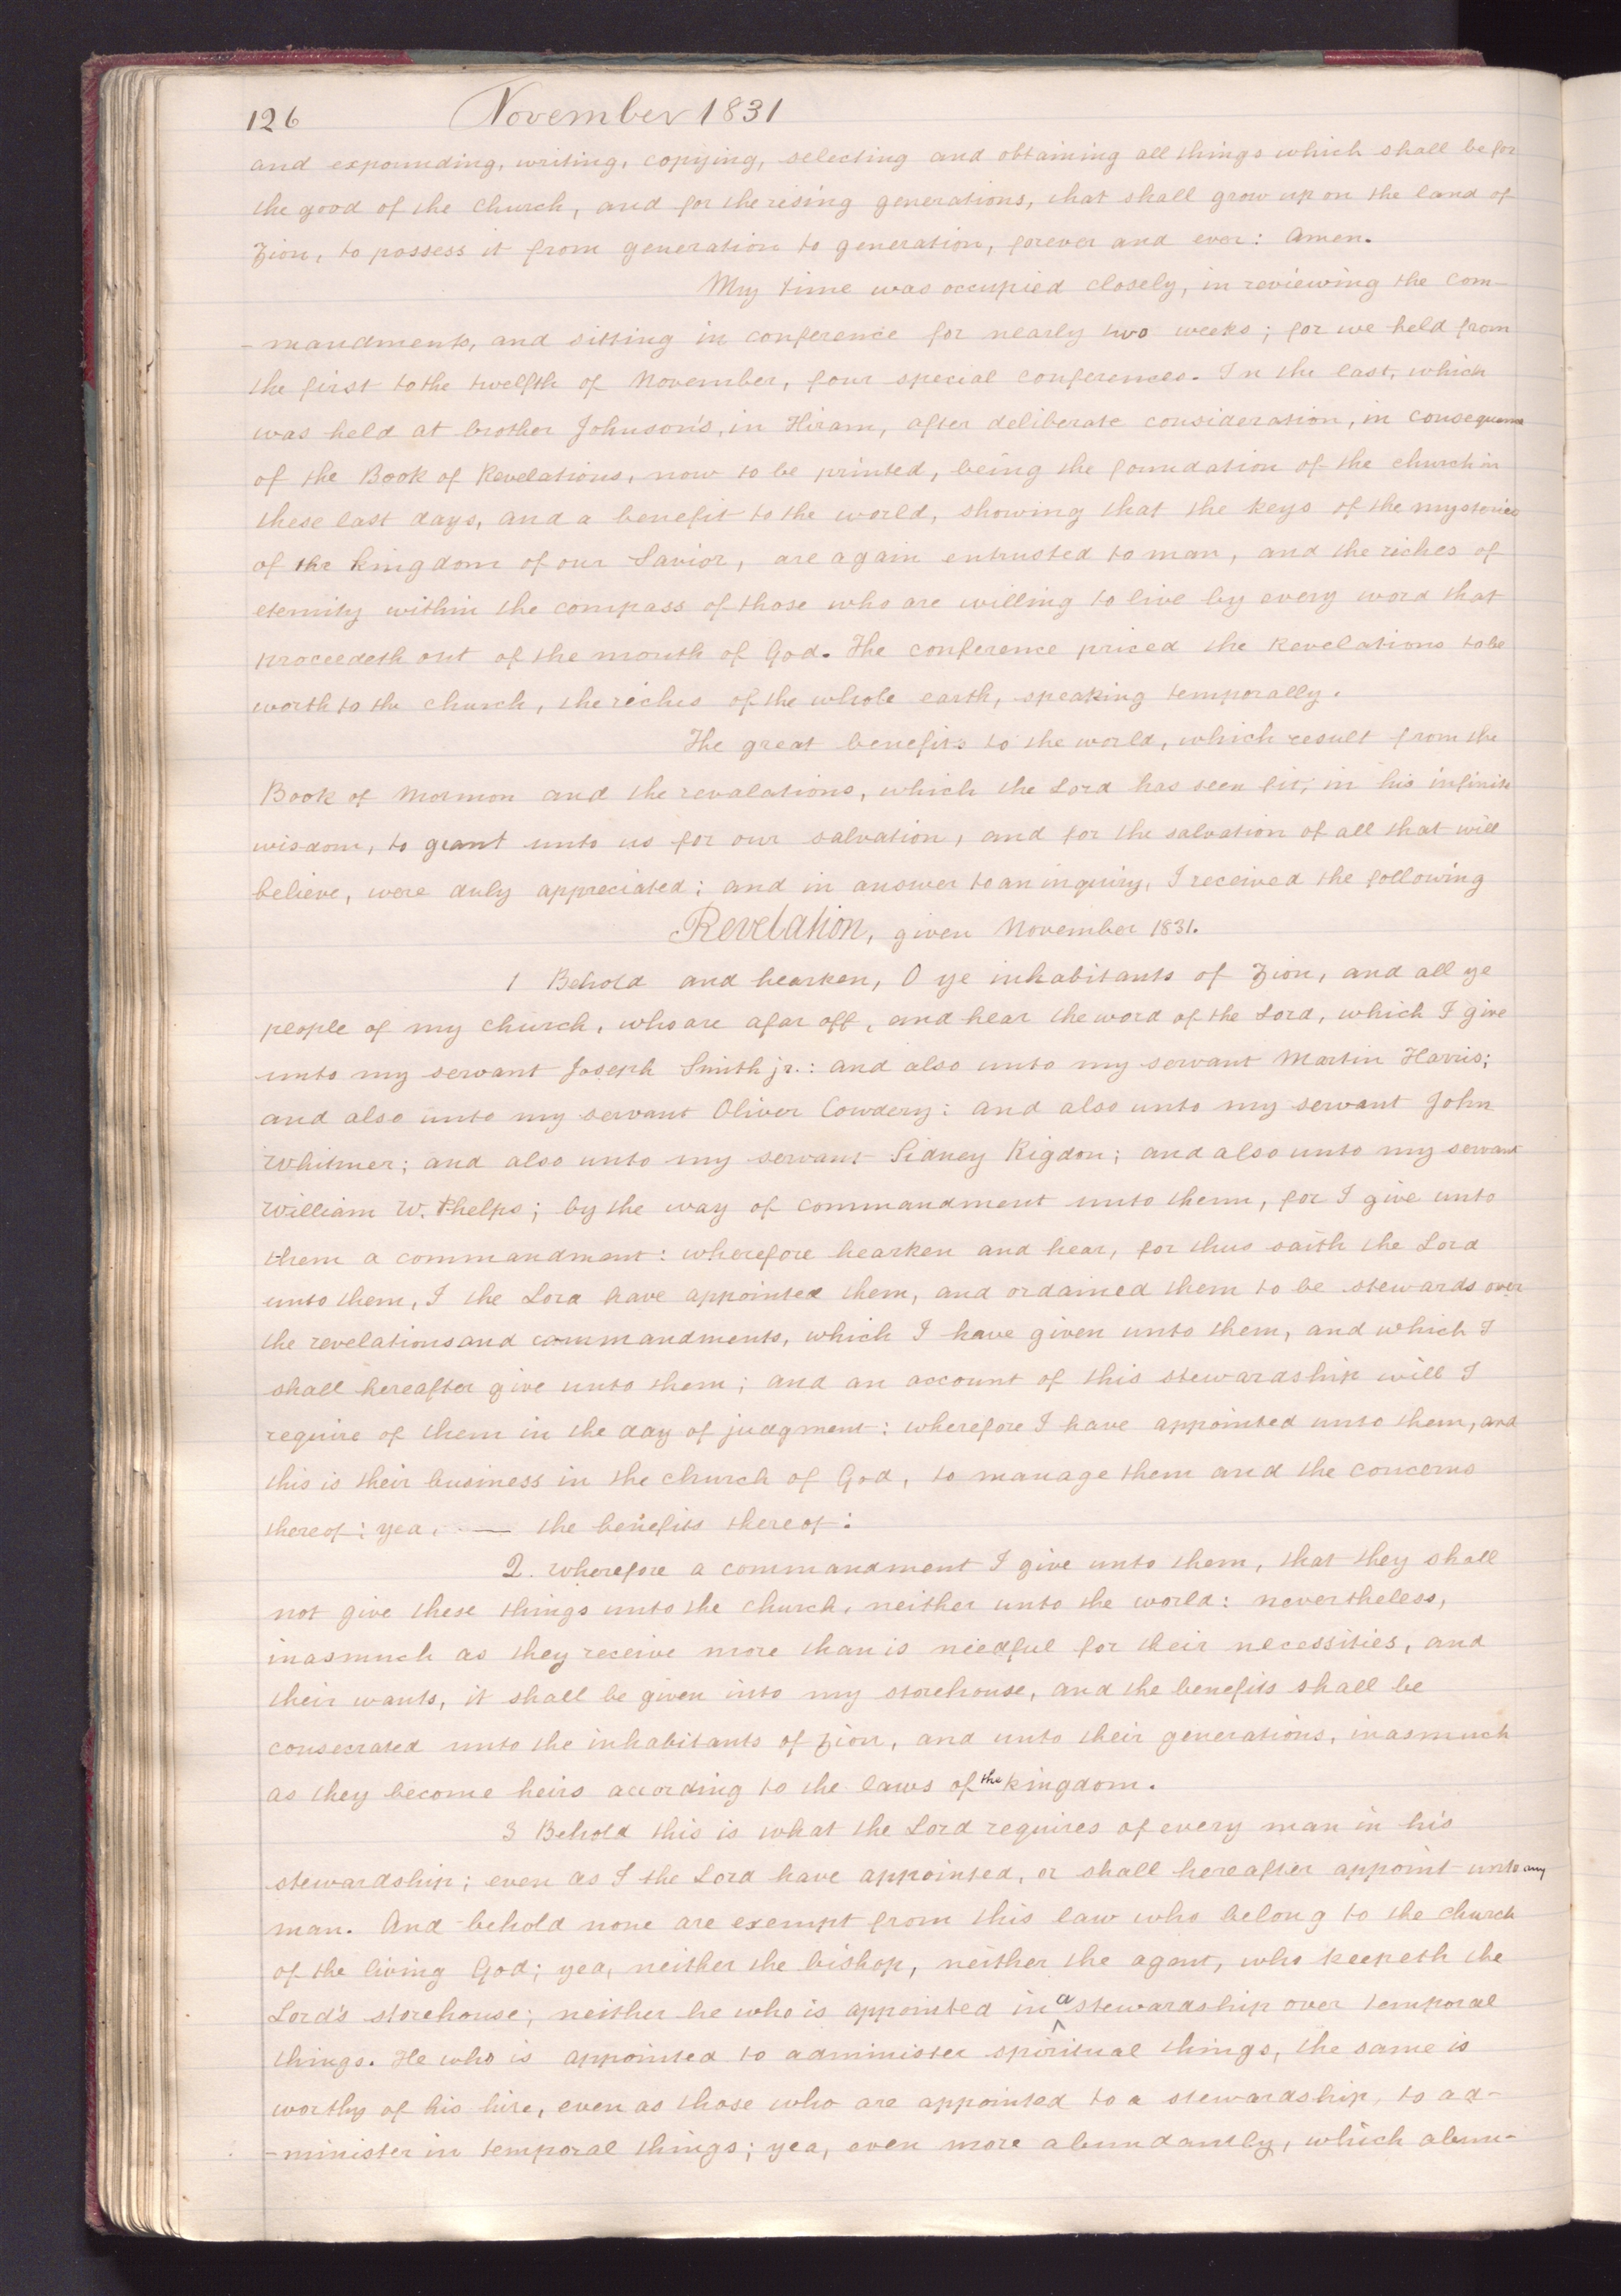 126 November 1831
and expounding, writing, copying, selecting and obtaining all things which shall be for
the good of the church, and for the rising generations, that shall grow up on the land of
Zion, to possess it from generation to generation, forever and ever: Amen.
My time was occupied closely, in reviewing the com-
-mandments, and sitting in conference for nearly two weeks; for we held from
the first to the twelfth of November, four special conferences. In the last, which
was held at brother Johnson's, in Hiram, after deliberate consideration, in consequence
of the Book of Revelations, now to be printed, being the foundation of the church in
these last days, and a benefit to the world, showing that the keys of the mysteries
of the kingdom of our Savior, are again entrusted to man, and the riches of
eternity within the compass of those who are willing to live by every word that
proceedeth out of the mouth of God. The conference priced the Revelations to be
worth to the church, the riches of the whole earth, speaking temporally.
The great benefits to the world, which result from the
Book of Mormon and the revalations, which the Lord has seen fit, in his infinite
wisdom, to grant unto us for our salvation, and for the salvation of all that will
believe, were duly appreciated; and in answer to an inquiry, I received the following
Revelation, given November 1831.
1 Behold and hearken, O ye inhabitants of Zion, and all ye
people of my church, who are afar off, and hear the word of the Lord, which I give
unto my servant Joseph Smith jr.: and also unto my servant Martin Harris;
and also unto my servant Oliver Cowdery: and also unto my servant John
Whitmer; and also unto my servant Sidney Rigdon; and also unto my servant
William W. Phelps; by the way of commandment unto them, for I give unto
them a commandment: wherefore hearken and hear, for thus saith the Lord
unto them, I the Lord have appointed them, and ordained them to be stewards over
the revelations and commandments, which I have given unto them, and which I
shall hereafter give unto them; and an account of this stewardship will I
require of them in the day of judgment: wherefore I have appointed unto them, and
this is their business in the church of God, to manage them and the concerns
thereof: yea, — the benefits thereof:
2. Wherefore a commandment I give unto them, that they shall
not give these things unto the church, neither unto the world: nevertheless,
inasmuch as they receive more than is needful for their necessities, and
their wants, it shall be given into my storehouse, and the benefits shall be
consecrated unto the inhabitants of Zion, and unto their generations, inasmuch
as they become heirs according to the laws of the kingdom.
3 Behold this is what the Lord requires of every man in his
stewardship; even as I the Lord have appointed, or shall hereafter appoint unto any
man. And behold none are exempt from this law who belong to the church
of the living God; yea, neither the bishop, neither the agent, who keepeth the
Lord's storehouse; neither he who is appointed in a stewardship over temporal
things. He who is appointed to administer spiritual things, the same is
worthy of his hire, even as those who are appointed to a stewardship, to ad-
-minister in temporal things; yea, even more abundantly, which abun-